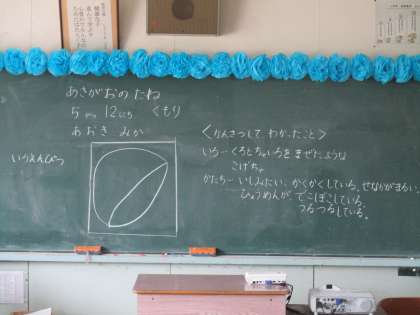 あさがおのたね
5がつ 12にち くもり
あおき みか
いろえんぴつ
＜かんさつして、わかったこと＞
いろ…くろとちゃいろをまぜたような
こげちゃ
かたち…いしみたい、かくかくしている。せなかがまるい。
ひょうめんが、でこぼこしている。
つるつるしている。